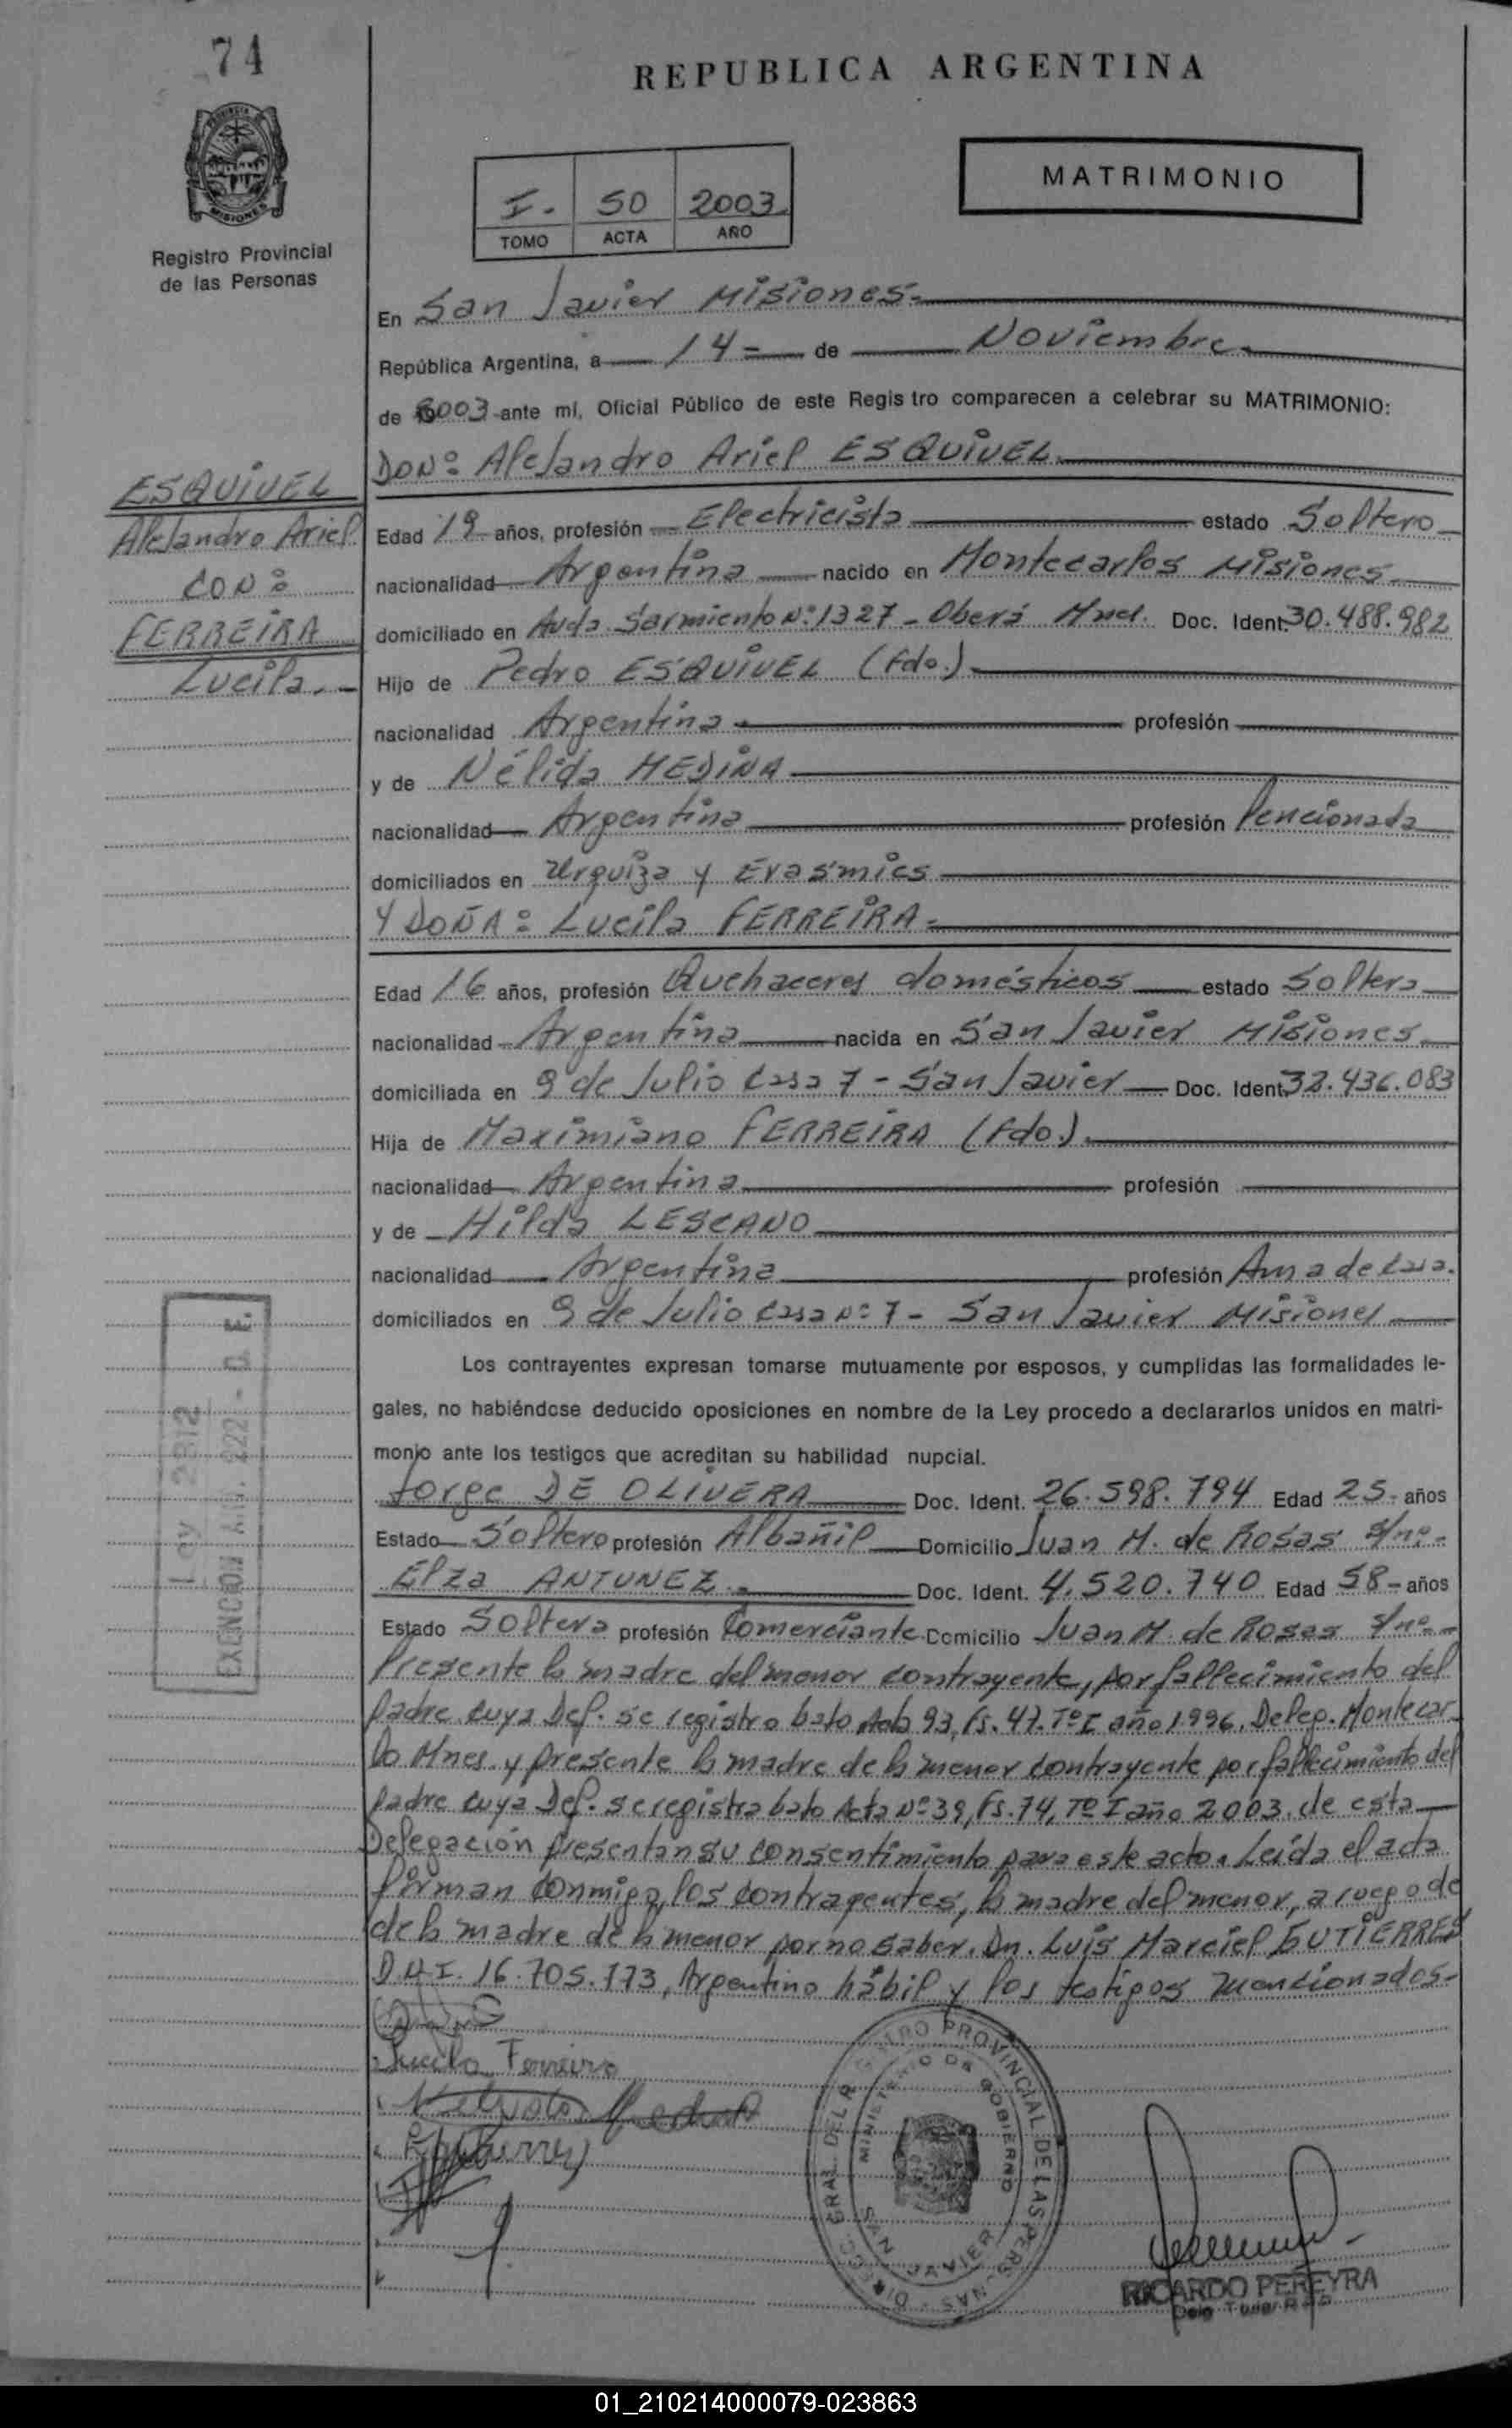 74
REPUBLICA ARGENTINA
MATRIMONIO
I. 50 2003
TOMO ACTA AÑO
PROVINCIA DE
MISIONES
Registro Provincial
de las Personas
En San Javier Misiones.
República Argentina, a 14 = de Noviembre
de 2003 ante mí, Oficial Público de este Regis tro comparecen a celebrar su MATRIMONIO:
DON: Alejandro Ariel ESQUIVEL
ESQUIVEL
Alejandro Ariel
CON:
FERREIRA
Lucila.
Edad 19 años, profesión Electricista estado Soltero
nacionalidad Argentina nacido en Montecarlos Misiones
domiciliado en Avda Sarmiento Nº 1327 - Oberá Mnes. Doc. Ident. 30.488.982
Hijo de Pedro ESQUIVEL (fdo.)
nacionalidad Argentina profesión
y de Nélida MEDINA
nacionalidad Argentina profesión Pencionada
domiciliados en Urquiza y
Y DOÑA: Lucila FERREIRA =
Edad 16 años, profesión Quehaceres domésticos estado Soltera
nacionalidad Argentina nacida en San Javier Misiones
domiciliada en 9 de Julio Casa 7 - San Javier Doc. Ident. 32.436.083
Hija de Maximiano FERREIRA (fdo.)
nacionalidad Argentina profesión
y de Hilda LESCANO
nacionalidad Argentina profesión Ama de Casa.
domiciliados en 9 de Julio Casa Nº 7 - San Javier Misiones
Los contrayentes expresan tomarse mutuamente por esposos, y cumplidas las formalidades le-
gales, no habiéndose deducido oposiciones en nombre de la Ley procedo a declararlos unidos en matri-
monio ante los testigos que acreditan su habilidad nupcial.
Jorge DE OLIVERA Doc. Ident. 26.598.794 Edad 25 años
Estado Soltero profesión Albañil Domicilio Juan M. de Rosas s/nº
Elza ANTUNEZ. Doc. Ident. 4.520.740 Edad 58 años
Estado Soltera profesión Comerciante Domicilio Juan M. de Rosas s/nº
Presente la madre del menor contrayente, por fallecimiento del
padre cuya Def. se registro bajo Acta 93, Fs. 47. Tº I año 1.996. Deleg. Montecar-
lo Mnes. y presente la madre de la menor contrayente por fallecimiento del
padre cuya Def. se registra bajo Acta Nº 39, Fs. 74, Tº I año 2003. de esta
Delegación presentan su consentimiento para este acto. Leída el acta
firman conmigo, los contrayentes, la madre del menor, a ruego de
de la madre de la menor por no saber. Dn. Luis Marciel GUTIERRES
D.N.I. 16.705.773, Argentino hábil y los testigos mencionados.
Ley 2812
EXENCION Art. 222 - D. F.
Lucila Ferreira
REGISTRO PROVINCIAL DE LAS PERSONAS
MINISTERIO DE GOBIERNO
SAN JAVIER
RICARDO PEREYRA
01_210214000079-023863